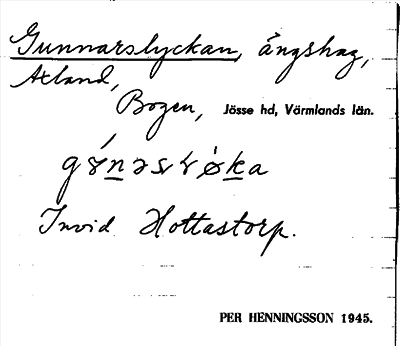 Gunnarslyckan, ängshag,
Axland,
Bogen, Jösse hd, Värmlands län.
Invid Hottastorp.
PER HENNINGSSON 1945.